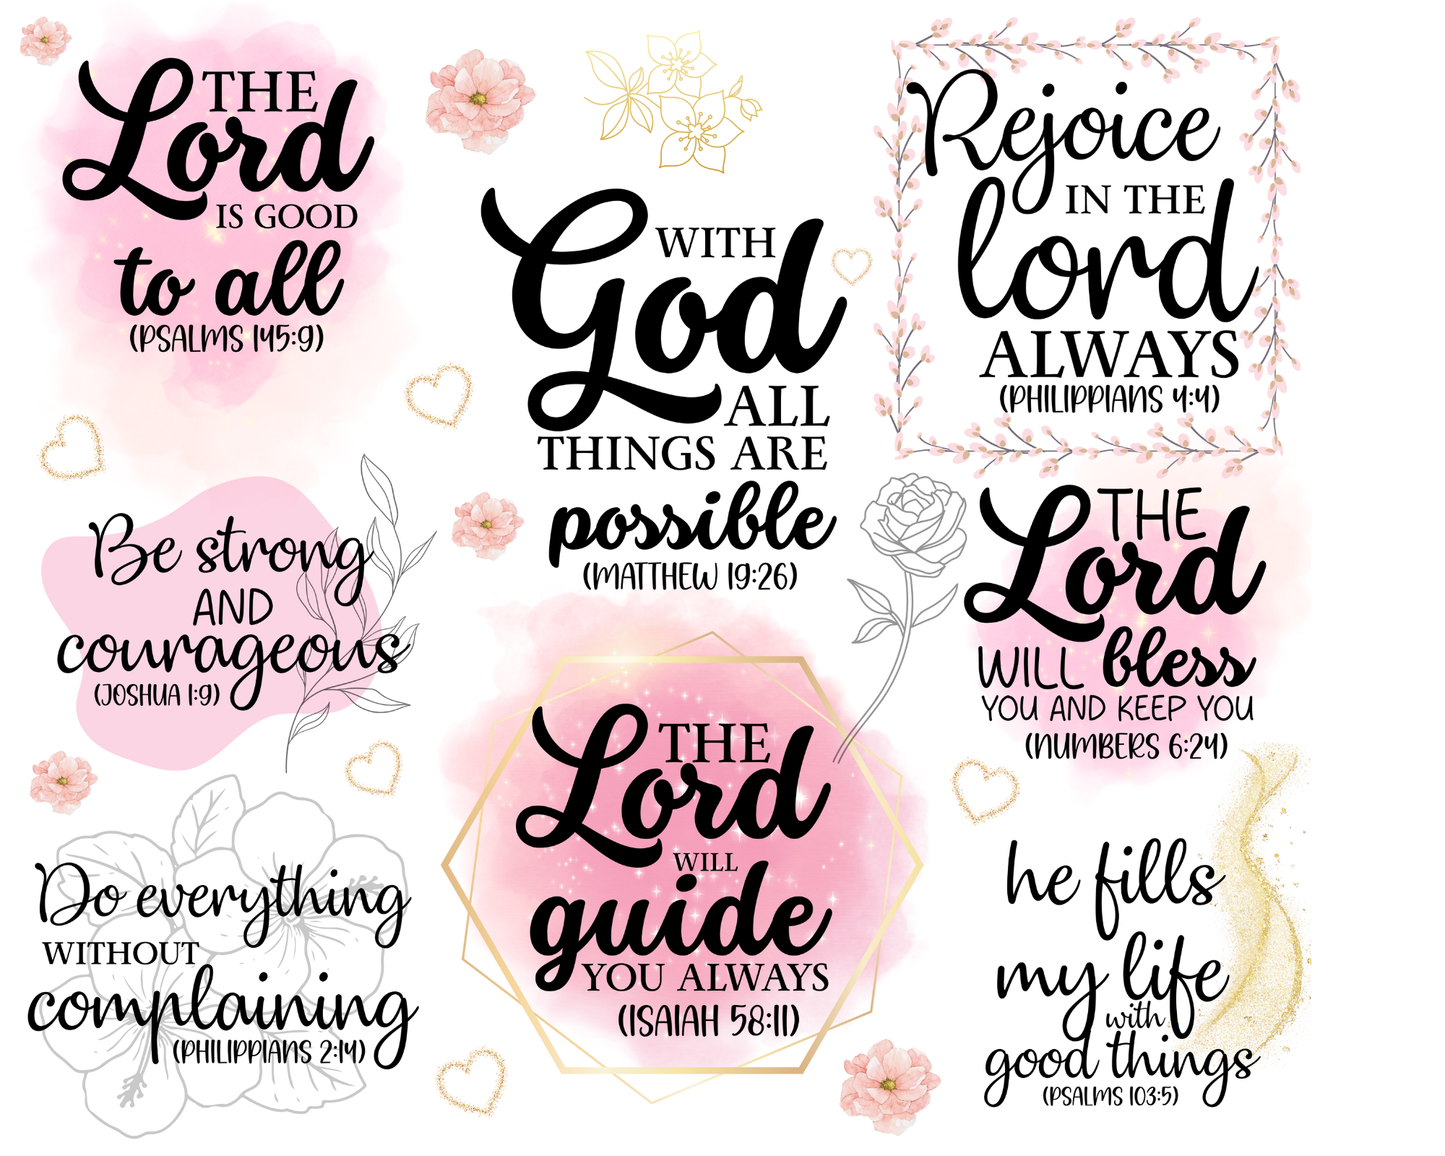 THE
Lord
IS GOOD
to all
(PSALMS 145:9)
WITH
God
ALL
THINGS ARE
possible
(MATTHEW 19:26)
Rejoice
IN THE
lord
ALWAYS
(PHILIPPIANS 4:4)
Be strong
AND
courageous
(JOSHUA 1:9)
THE
Lord
WILL
guide
YOU ALWAYS
(ISAIAH 58:11)
THE
Lord
WILL bless
YOU AND KEEP YOU
(NUMBERS 6:24)
Do everything
WITHOUT
complaining
(PHILIPPIANS 2:14)
he fills
my life
with
good things
(PSALMS 103:5)